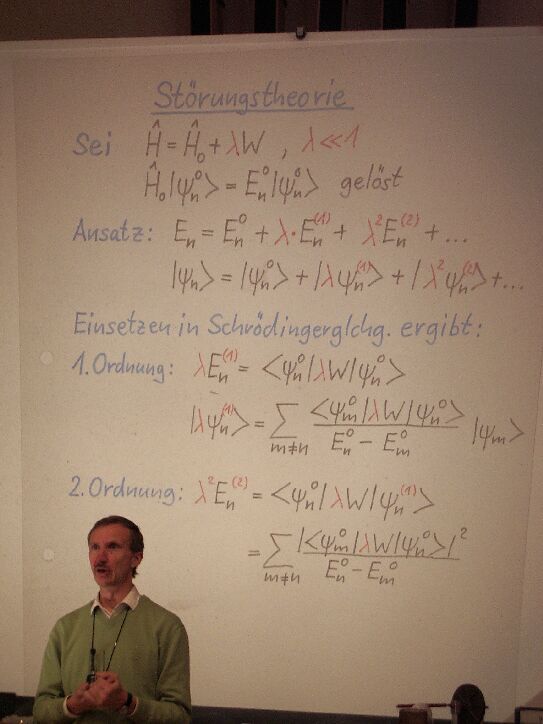 Störungstheorie
Sei Ĥ = Ĥ₀ + λW , λ≪1
Ĥ₀|ψₙ⁰> = Eₙ⁰|ψₙ⁰> gelöst
Ansatz: Eₙ = Eₙ⁰ + λ·Eₙ⁽¹⁾ + λ²Eₙ⁽²⁾ + ...
|ψₙ> = |ψₙ⁰> + |λψₙ⁽¹⁾> + |λ²ψₙ⁽²⁾> + ...
Einsetzen in Schrödingerglchg. ergibt:
1. Ordnung: λEₙ⁽¹⁾ = <ψₙ⁰|λW|ψₙ⁰>
|λψₙ⁽¹⁾> = ∑_{m≠n} <ψₘ⁰|λW|ψₙ⁰> / (Eₙ⁰ − Eₘ⁰) |ψₘ>
2. Ordnung: λ²Eₙ⁽²⁾ = <ψₙ⁰|λW|ψₙ⁽¹⁾>
= ∑_{m≠n} |<ψₘ⁰|λW|ψₙ⁰>|² / (Eₙ⁰ − Eₘ⁰)